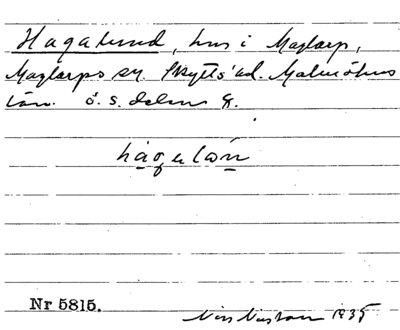 Hagalund, hus i Maglarp,
Maglarps sn. Skytts hd. Malmöhus
län. ö. s. delen G.
hagalön
Nr 5815.
1935